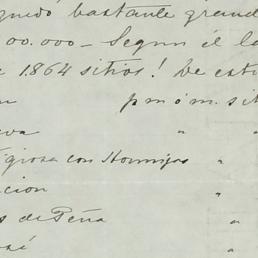 quedó bastante grand
00.000 – Segun él la
1.864 sitios! De est
p m ó m. sit
va "
giosa con Hormigas "
cion "
s de Peña "
osé "